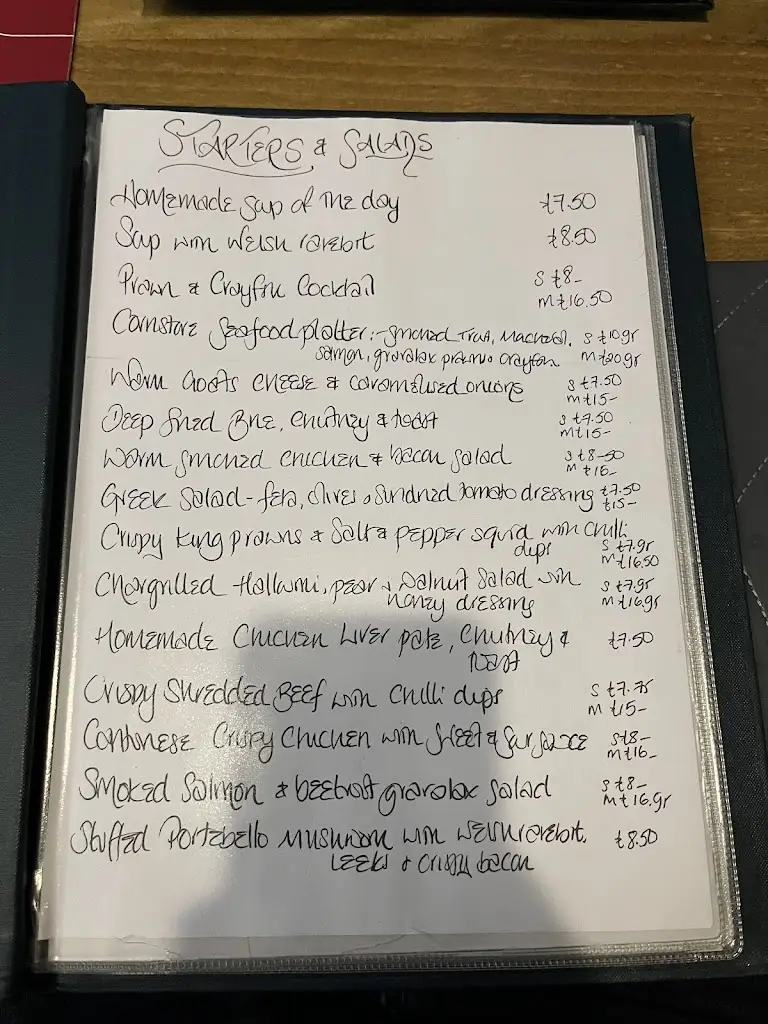 STARTERS & SALADS
Homemade Soup of the day £7.50
Soup with Welsh rarebit £8.50
Prawn & Crayfish Cocktail S £8-
M £16.50
Seafood platter:- smoked Trout, Mackerel, S £10.95
salmon, gravalax prawns crayfish M £20.95
Warm Goats Cheese & caramelised onions S £7.50
M £15-
Deep Fried Brie, Chutney & toast S £7.50
M £15-
Warm smoked chicken & bacon salad S £8-50
M £16-
Greek Salad - feta, olives & sundried tomato dressing £7.50
£15-
Crispy King prawns & Salt & pepper squid with chilli
dips S £7.95
M £16.50
Chargrilled Halloumi, pear & walnut Salad with S £7.95
honey dressing M £16.95
Homemade Chicken Liver pate, Chutney & £7.50
toast
Crispy Shredded Beef with Chilli dips S £7.75
M £15-
Cantonese Crispy Chicken with Sweet & Sour sauce S £8-
M £16-
Smoked Salmon & beetroot gravalax salad S £8-
M £16.95
Stuffed Portobello mushroom with Welsh rarebit, £8.50
Leeks & crispy bacon